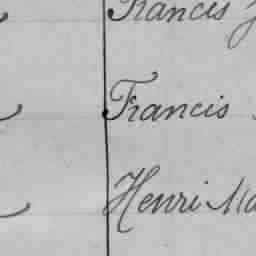 Francis
Francis
Henri Ma